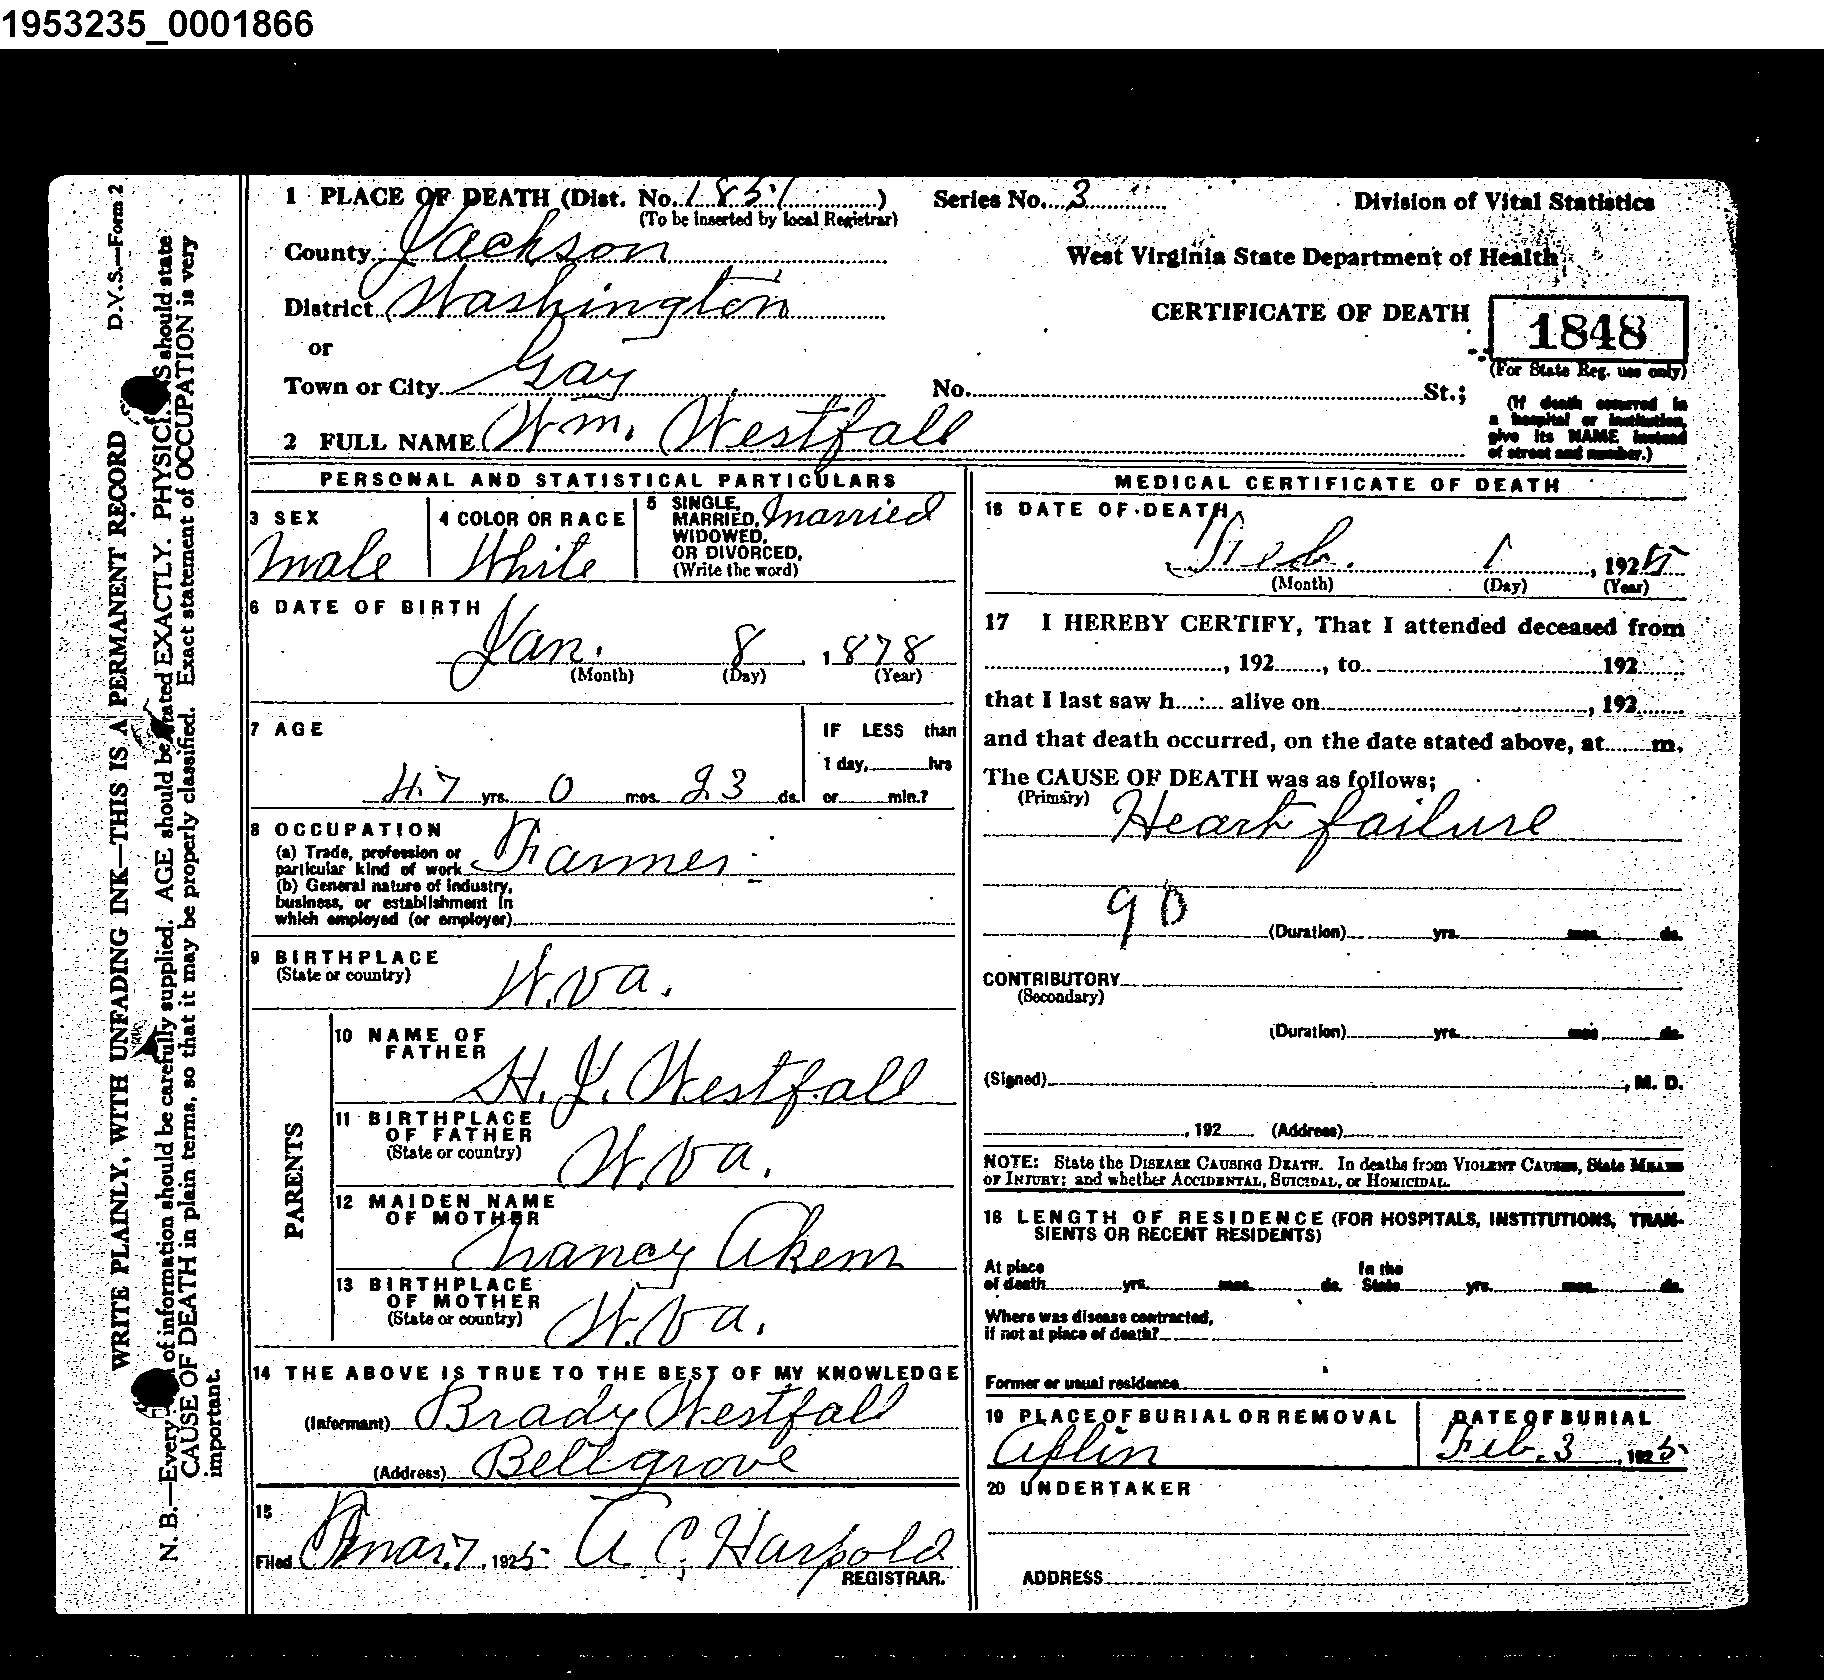 1953235_0001866
D.V.S.—Form 2
WRITE PLAINLY, WITH UNFADING INK—THIS IS A PERMANENT RECORD
N. B.—Every of information should be carefully supplied. AGE should be stated EXACTLY. PHYSICI should state
CAUSE OF DEATH in plain terms, so that it may be properly classified. Exact statement of OCCUPATION is very
important.
1 PLACE OF DEATH (Dist. No. 1851) Series No. 3 Division of Vital Statistics
(To be inserted by local Registrar)
County Jackson West Virginia State Department of Health
District Washington CERTIFICATE OF DEATH 1848
or (For State Reg. use only)
Town or City Gay No. St.;
(If death occurred in
a hospital or institution,
give its NAME instead
of street and number.)
2 FULL NAME Wm. Westfall
PERSONAL AND STATISTICAL PARTICULARS
3 SEX
Male
4 COLOR OR RACE
White
5 SINGLE,
MARRIED, Married
WIDOWED,
OR DIVORCED,
(Write the word)
6 DATE OF BIRTH
Jan. 8, 1878
(Month) (Day) (Year)
7 AGE
47 yrs. 0 mos. 23 ds.
IF LESS than
1 day, hrs
or min.?
8 OCCUPATION
(a) Trade, profession or
particular kind of work Farmer
(b) General nature of industry,
business, or establishment in
which employed (or employer)
9 BIRTHPLACE
(State or country) W.Va.
PARENTS
10 NAME OF
FATHER
H. Y. Westfall
11 BIRTHPLACE
OF FATHER
(State or country) W.Va.
12 MAIDEN NAME
OF MOTHER
Nancy Akem
13 BIRTHPLACE
OF MOTHER
(State or country) W.Va.
14 THE ABOVE IS TRUE TO THE BEST OF MY KNOWLEDGE
(Informant) Brady Westfall
(Address) Bellgrove
15
Filed Mar. 7, 1925 A. C. Harpold
REGISTRAR.
MEDICAL CERTIFICATE OF DEATH
16 DATE OF DEATH
Feb. 1, 1925
(Month) (Day) (Year)
17 I HEREBY CERTIFY, That I attended deceased from
, 192 , to 192
that I last saw h alive on , 192
and that death occurred, on the date stated above, at m.
The CAUSE OF DEATH was as follows;
(Primary) Heart failure
90
(Duration) yrs. mos. ds.
CONTRIBUTORY
(Secondary)
(Duration) yrs. mos. ds.
(Signed) , M. D.
, 192 (Address)
NOTE: State the DISEASE CAUSING DEATH. In deaths from VIOLENT CAUSES, State MEANS
OF INJURY; and whether ACCIDENTAL, SUICIDAL, or HOMICIDAL.
18 LENGTH OF RESIDENCE (FOR HOSPITALS, INSTITUTIONS, TRAN-
SIENTS OR RECENT RESIDENTS)
At place In the
of death yrs. mos. ds. State yrs. mos. ds.
Where was disease contracted,
if not at place of death?
Former or usual residence
19 PLACE OF BURIAL OR REMOVAL
Aplin
DATE OF BURIAL
Feb. 3, 1925
20 UNDERTAKER
ADDRESS